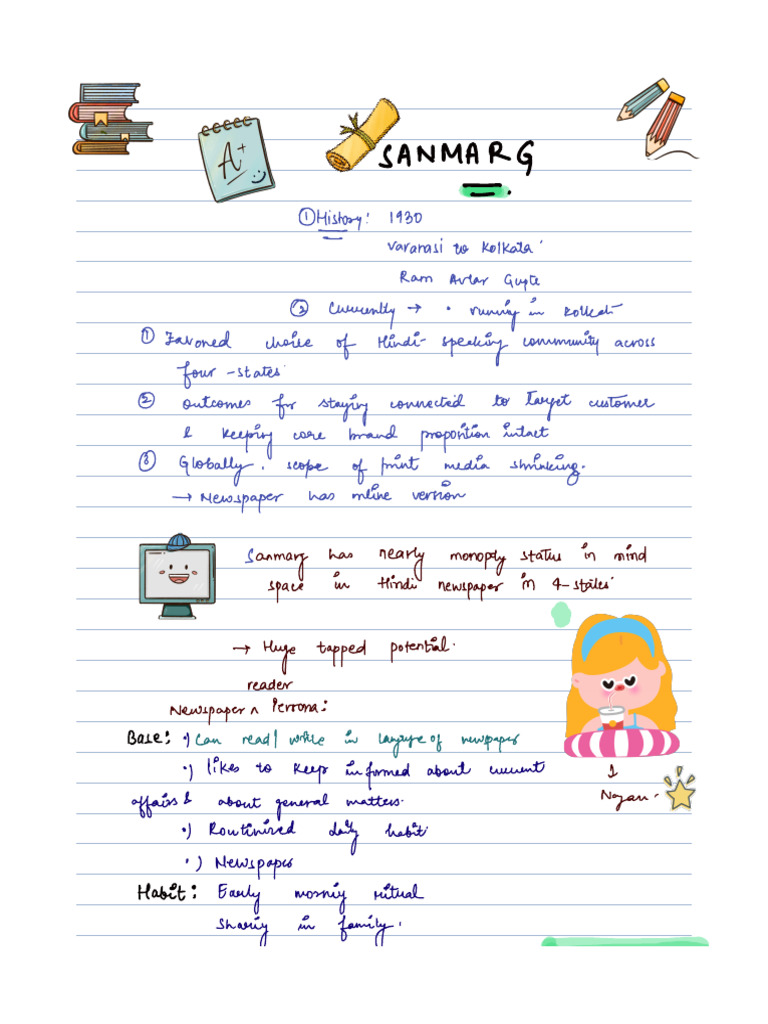 A+
SANMARG
① History: 1930
Varanasi to Kolkata
Ram Avtar Gupta
② Currently → • running in Kolkata
① Favored choice of Hindi-speaking community across
four-states
② outcomes for staying connected to Target customer
& keeping core brand proportion intact
③ Globally, scope of print media shrinking.
→ Newspaper has online version
Sanmarg has nearly monopoly status in mind
space in Hindi newspaper in 4-states
→ Huge tapped potential.
reader
Newspaper ^ Persona:
Base: •) Can read/write in language of newspaper
•) likes to keep informed about current
affairs & about general matters.
•) Routinised daily habit
•) Newspaper
Nayan.
Habit: Early morning ritual
sharing in family.